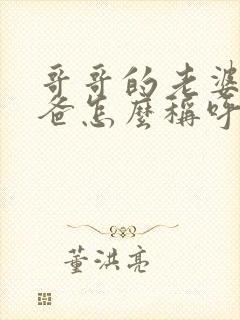 哥哥的老婆
爸怎麼稱呼
董洪亮